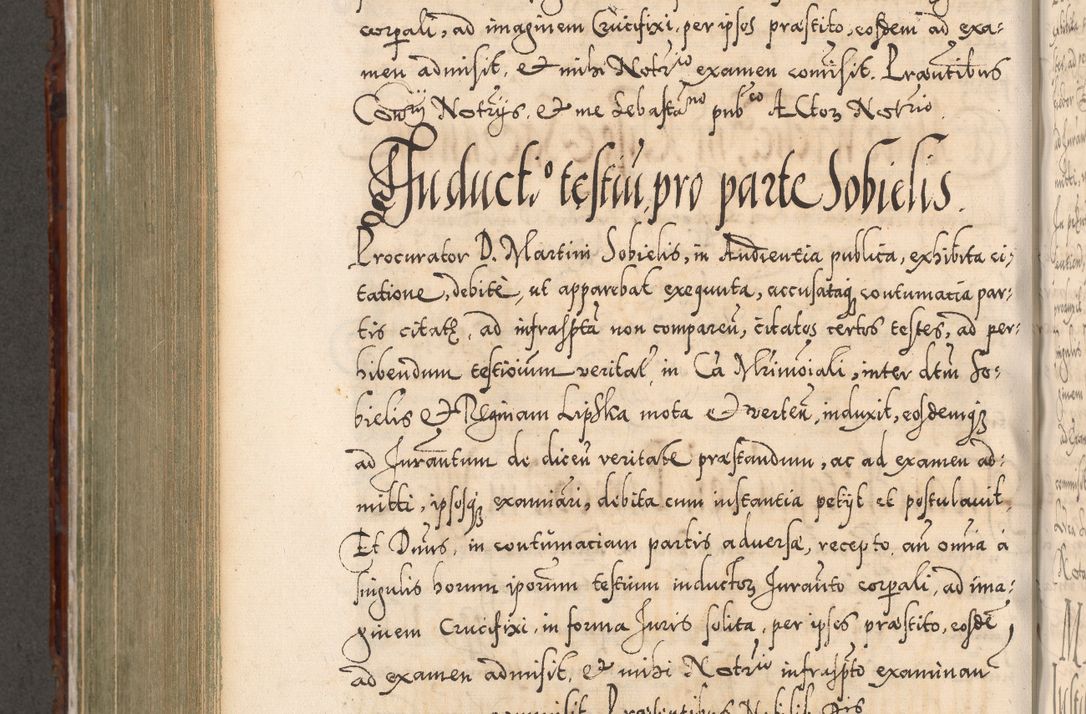 corpali, ad imaginem Crucifixi, per ipsos præstito, eosdem ad exa:
men admisit, et mihi Notrio examen comisit. Præntibus
Notrijs, et me Sebastano pubco Actor Notrio.
Inducto testiu, pro parte Sobielis.
Procurator D. Martini Sobielis, in Audientia publica, exhibita ci;
tatione, debite, ut apparebat exequuta, accusataq contumatia par:
tis citatæ, ad infrascptā non comparen, citatos certos testes, ad per:
hibendum testioium veritat, in Cā Mrimoiali, inter dtm So:
bielis et Reginam Lipska mota et verten, induxit, eosdemq
ad Jurantum de dicen veritate præstandum, ac ad examen ad:
mitti, ipsosq examiari, debita cum instantia petijt et postulauit.
Et Dnus, in contumaciam partis aduersæ, recepto, an omia à
singulis horum iporum testium inductor Jurauto corpali, ad ima:
ginem Crucifixi, in forma Juris solita, per ipsos præstito, eosdē
ad examen admisit, et mihi Notrio infrascpto examinan
comisit. Præsentibus Nobilib